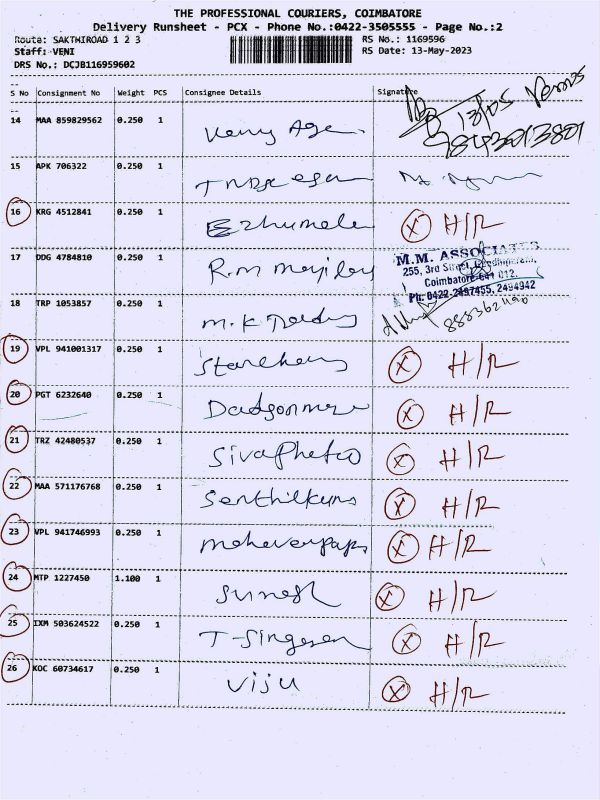 THE PROFESSIONAL COURIERS, COIMBATORE
Delivery Runsheet - PCX - Phone No.:0422-3505555 - Page No.:2
Route: SAKTHIROAD 1 2 3 RS No.: 1169596
Staff: VENI RS Date: 13-May-2023
DRS No.: DCJB116959602
S No Consignment No Weight PCS Consignee Details Signature
14 MAA 859829562 0.250 1 13/05
9843013801
15 APK 706322 0.250 1
16 KRG 4512841 0.250 1 Ezhumale X H/R
17 DDG 4784810 0.250 1 R.m
M.M. ASSOCIATES
255, 3rd Street,
Coimbatore-641 012.
Ph: 0422-2497455, 2494942
18 TRP 1053857 0.250 1 M.K
19 VPL 941001317 0.250 1 X H/R
20 PGT 6232640 0.250 1 X H/R
21 TRZ 42480537 0.250 1 X H/R
22 MAA 571176768 0.250 1 Senthilkums X H/R
23 VPL 941746993 0.250 1 X H/R
24 MTP 1227450 1.100 1 Suresh X H/R
25 IXM 503624522 0.250 1 X H/R
26 KOC 60734617 0.250 1 Viju X H/R